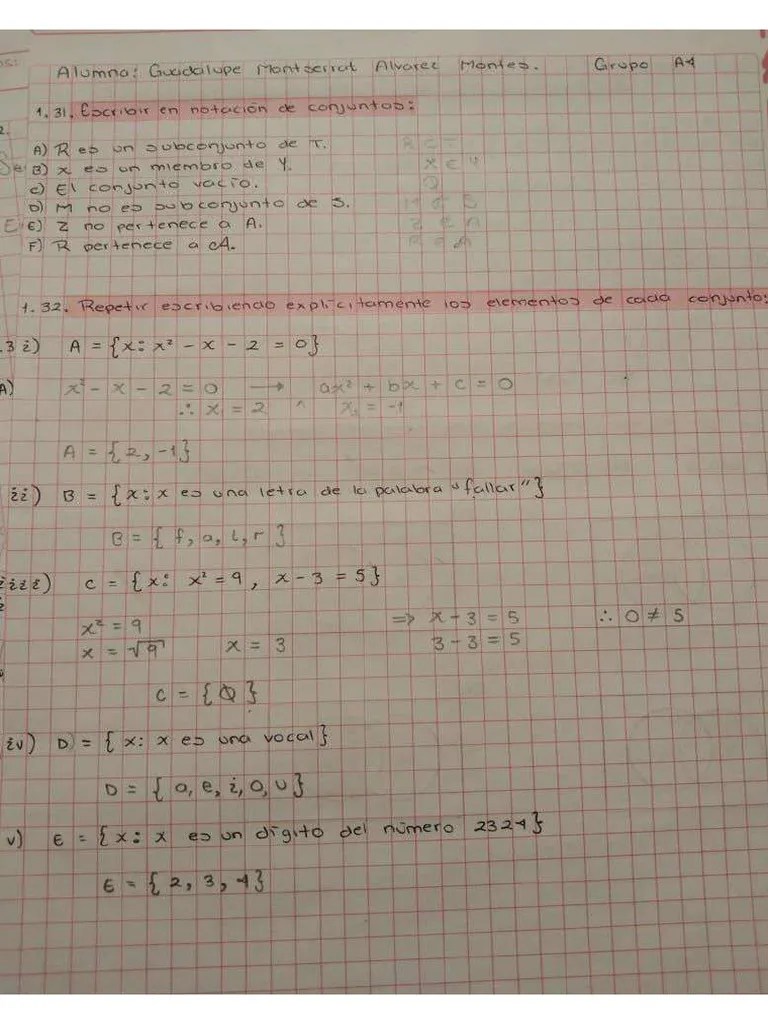 Alumna: Guadalupe Montserrat Alvarez Montes. Grupo A4
1.31. Escribir en notación de conjuntos:
A) R es un subconjunto de T. R ⊂ T
B) x es un miembro de Y. x ∈ Y
C) El conjunto vacío. Ø
D) M no es subconjunto de S. M ⊄ S
E) Z no pertenece a A. Z ∉ A
F) R pertenece a cA.
1.32. Repetir escribiendo explícitamente los elementos de cada conjunto:
i) A = {x: x² - x - 2 = 0}
x² - x - 2 = 0 → ax² + bx + c = 0
∴ x₁ = 2 ^ x₂ = -1
A = {2, -1}
ii) B = {x: x es una letra de la palabra "fallar"}
B = {f, a, l, r}
iii) C = {x: x² = 9, x - 3 = 5}
x² = 9 ⇒ x - 3 = 5 ∴ 0 ≠ 5
x = √9 x = 3 3 - 3 = 5
C = {Ø}
iv) D = {x: x es una vocal}
D = {a, e, i, o, u}
v) E = {x: x es un dígito del número 2324}
E = {2, 3, 4}